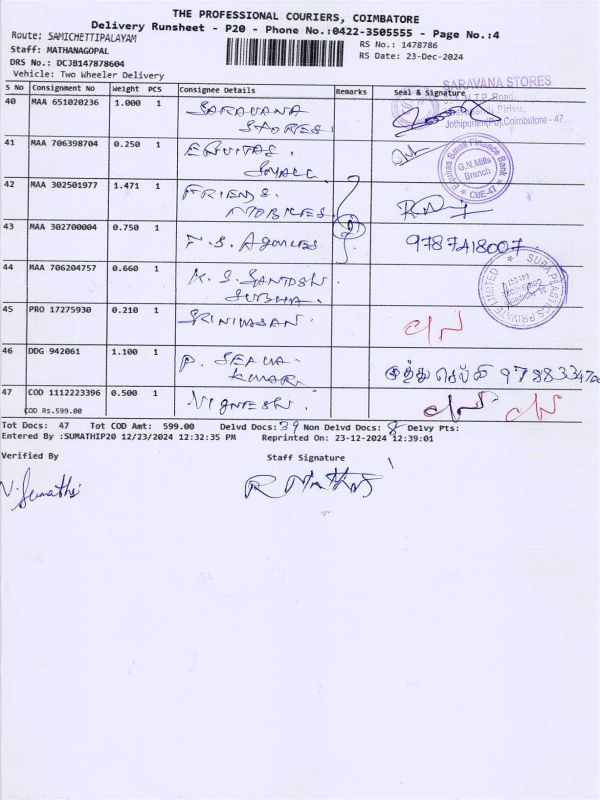 THE PROFESSIONAL COURIERS, COIMBATORE
Delivery Runsheet - P20 - Phone No.:0422-3505555 - Page No.:4
Route: SAMICHETTIPALAYAM
RS No.: 1478786
Staff: MATHANAGOPAL
RS Date: 23-Dec-2024
DRS No.: DCJB147878604
Vehicle: Two Wheeler Delivery
S No Consignment No Weight PCS Consignee Details Remarks Seal & Signature
SARAVANA STORES
40 MAA 651020236 1.000 1 SARAVANA
STORES
Jothipuram(Po),Coimbatore - 47
41 MAA 706398704 0.250 1 EQUITAS
SMALL
Equitas Small Finance Bank
G.N.Mills
Branch
CBE-47
42 MAA 302501977 1.471 1 FRIENDS
MOBILES
43 MAA 302700004 0.750 1 AGENCIES 9787418007
44 MAA 706204757 0.660 1 K. S. SANTOSH
SUBHA
SUBA PLASTICS PRIVATE LIMITED
45 PRO 17275930 0.210 1 SRINIVASAN
46 DDG 942061 1.100 1 P. SELVA
KUMAR
47 COD 1112223396 0.500 1 VIGNESH
COD Rs.599.00
Tot Docs: 47 Tot COD Amt: 599.00 Delvd Docs: 39 Non Delvd Docs: 8 Delvy Pts:
Entered By :SUMATHIP20 12/23/2024 12:32:35 PM Reprinted On: 23-12-2024 12:39:01
Verified By Staff Signature
V. Sumathi